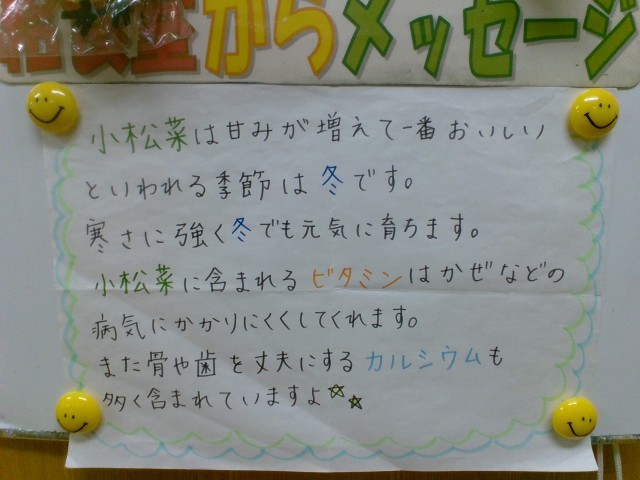 からメッセージ
小松菜は甘みが増えて一番おいしい
といわれる季節は冬です。
寒さに強く冬でも元気に育ちます。
小松菜に含まれるビタミンはかぜなどの
病気にかかりにくくしてくれます。
また骨や歯を丈夫にするカルシウムも
多く含まれていますよ☆☆